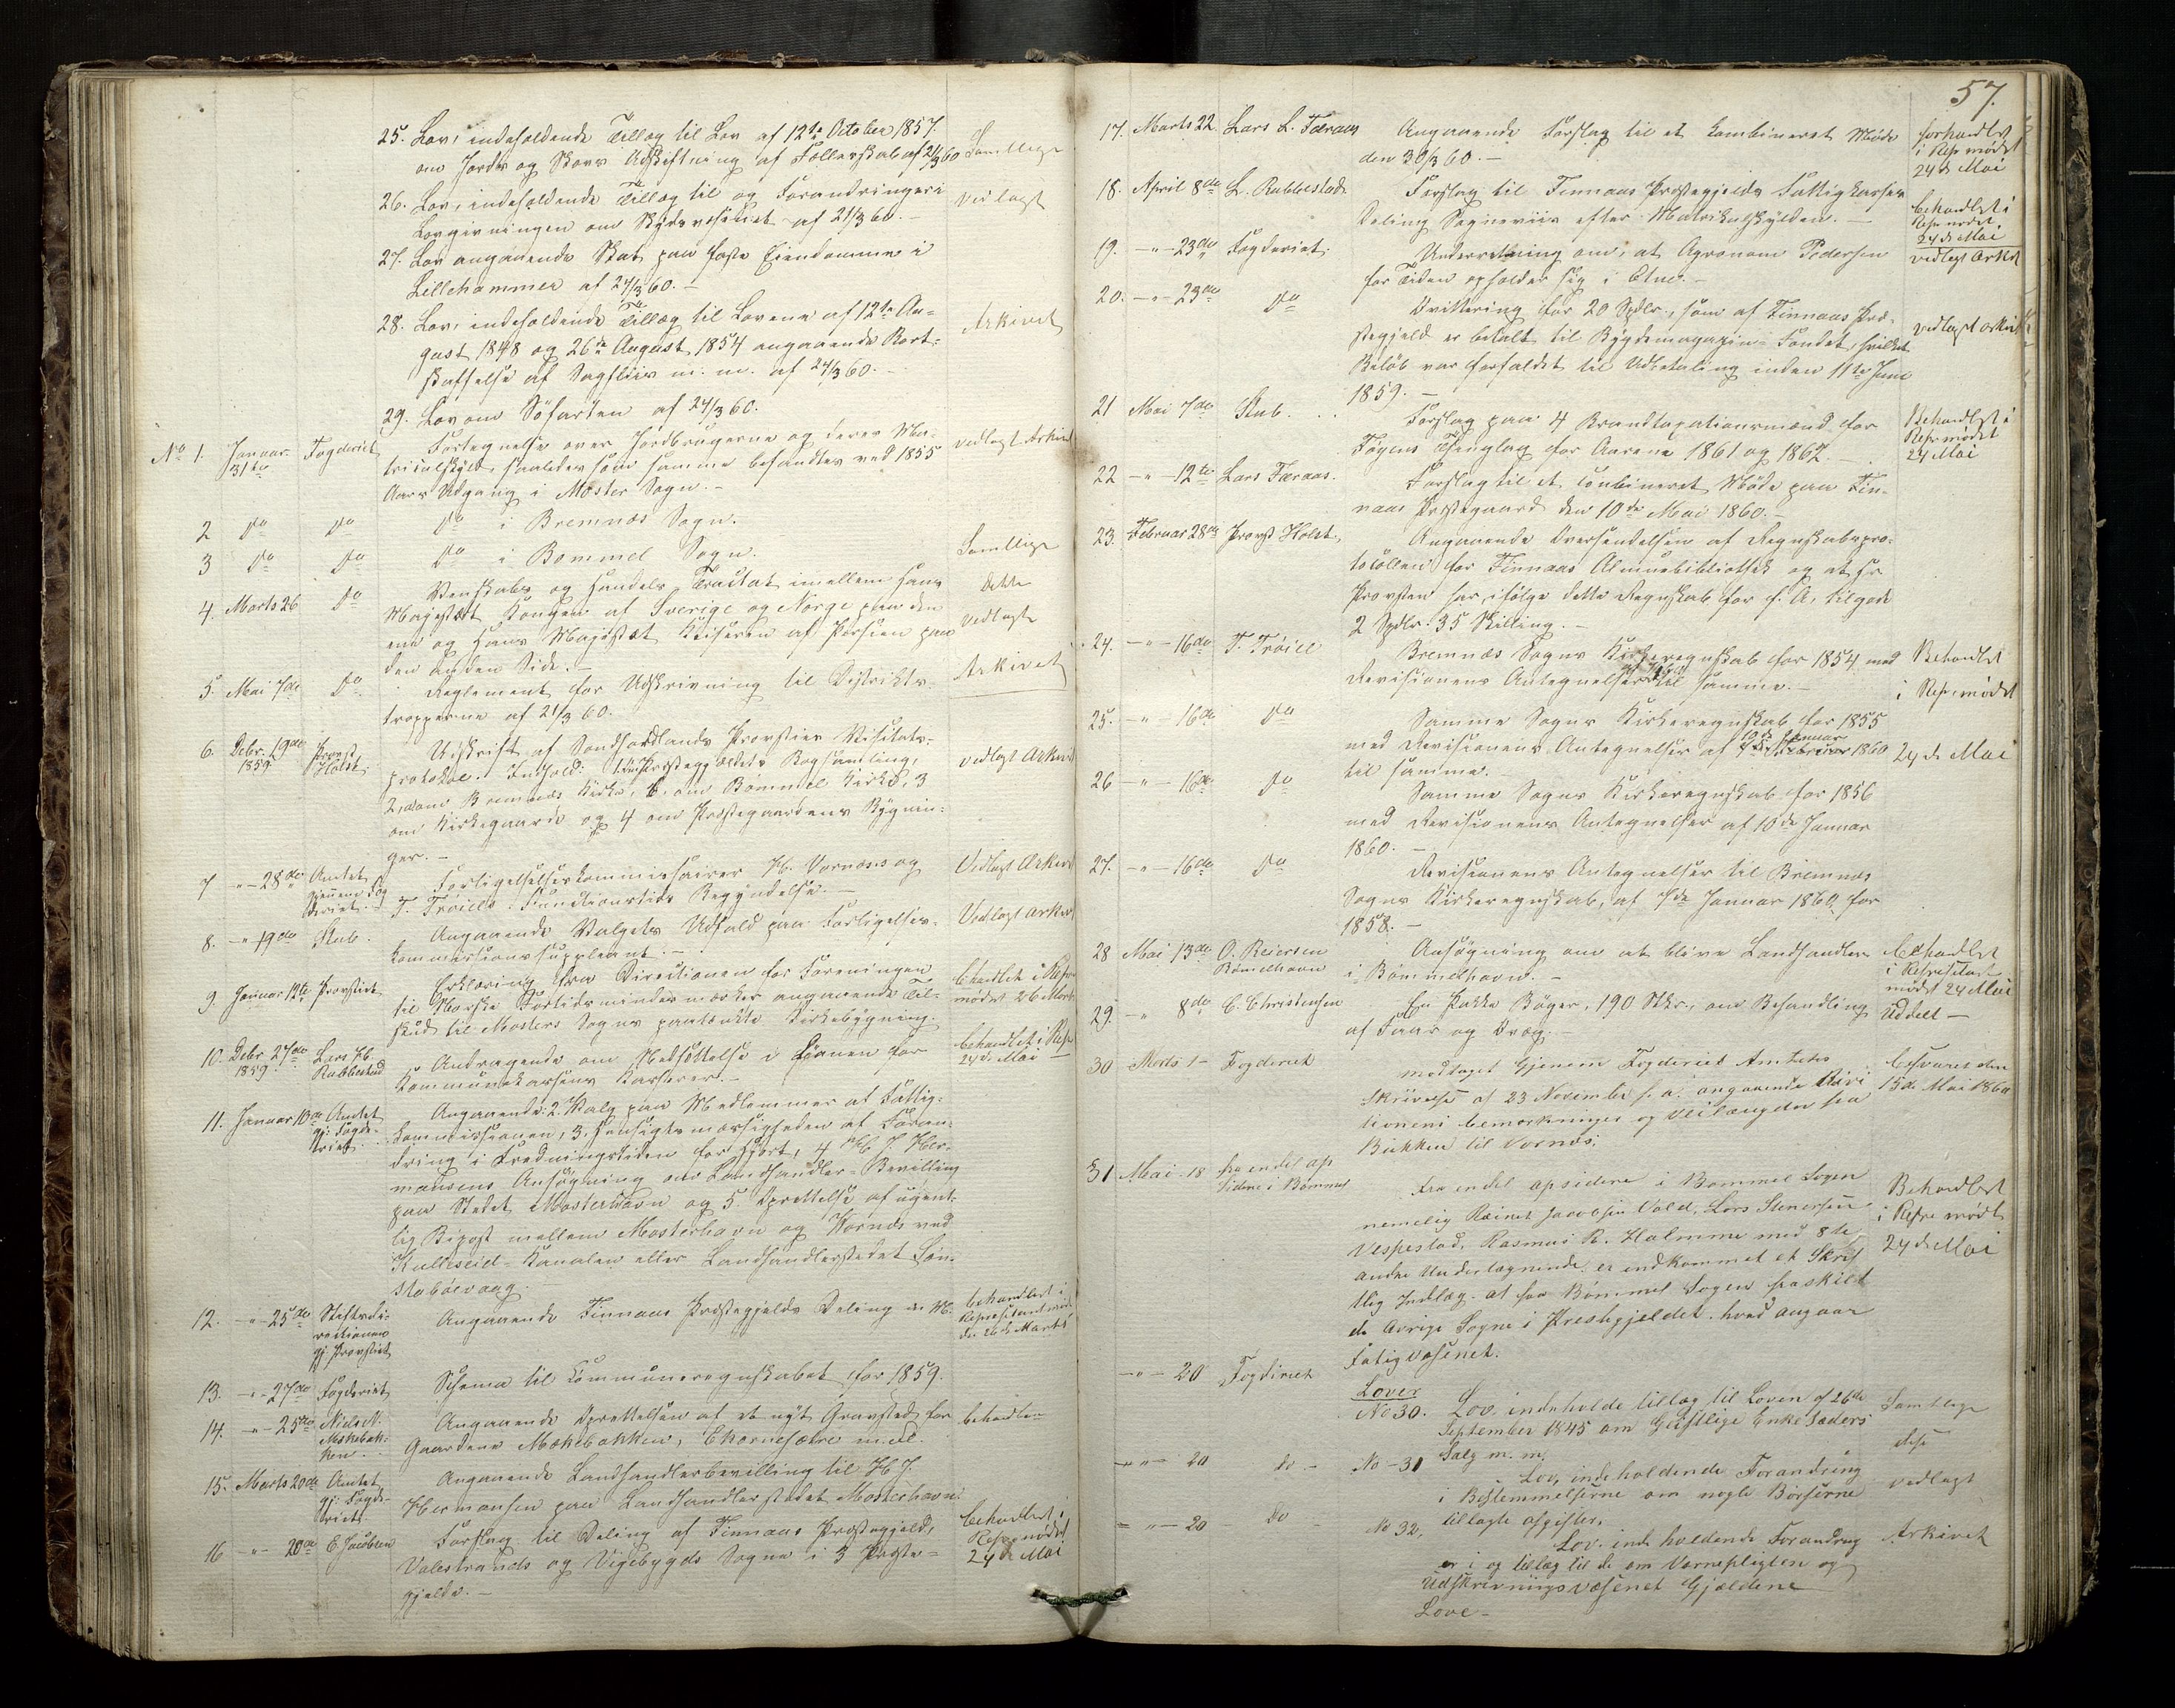 25. Lov, indeholdende Tillæg til Lov af 12te October 1857.
om Jords og Skovs Udskiftning af Fællesskab af 21/3 60
Samtlige
26. Lov, indeholdende Tillæg til og Forandringer i
Lovgivningen om Skydsvæsenet af 21/3 60.-
vedlagt
27. Lov angaaende Skat paa faste Eiendomme i
Lillehammer af 24/3 60.-
28. Lov, indeholdende Tillæg til Lovene af 12te Au-
gust 1848 og 26de August 1854 angaaende Bort-
skaffelse af Sagfliis m. m. af 24/3 60.-
Arkivet
29. Lov om Söfarten af 24/3 60.
No 1. Januar 31te Fogderiet Fortegnelse over Jordbrugerne og deres Ma-
trikulskyld, saaledes som samme befandtes ved 1855
Aars Udgang i Moster Sogn.-
vedlagt Arkivet
2 do do do i Bremnæs Sogn.
3 do do do i Bømmel Sogn.
4. Marts 26 do Venskabs og Handels Tractat imellem Hans
Majestæt Kongen af Sverige og Norge paa den
ene og Hans Majestæt Keiseren af Persien paa
den anden Side.-
Samtlige
dette
vedlagte
Arkivet
5. Mai 7de do Reglement for Udskrivning til Distrikts-
tropperne af 21/3 60.
6. Debr. 19de 1859 Provst Holst. Udskrift af Söndhordlands Provsties Visitats-
protokol. Indhold: 1. om Præstegjeldets Bogsamling,
2, a om Bremnæs Kirke, b. om Bömmel Kirke, 3
om Kirkegaarde og 4 om Præstegaardens Bygnin-
ger.-
vedlagt Arkivet
7 -"- 28de Amtet gjennem Fog-
deriet. Forligelseskommissairer H. Vornæs's og
T. Tröiels Functionstids Begyndelse.-
Vedlagt Arkivet
8. -"- 19de Stub. Angaaende Valgets Udfald paa Forligelses-
kommissionssuppleant.-
Vedlagt Arkivet
9. Januar 12te Provstiet Erklæring fra Directionen for Foreningen
til Norske Fortidsmindesmærker angaaende Til-
skud til Mosters Sogns paatænkte Kirkebygning.
behandlet i Repr
mödet 26 Marts
10. Debr. 27de 1859 Lars H. Rubbestad Andragende om Nedsættelse i Lönnen for
Kommunekassens Kasserer.-
behandlet i Repr
24de Mai -
11. Januar 10de Amtet gj. Fogde-
riet. Angaaende: 2. Valg paa Medlemmer af Fattig-
kommissionen, 3. Hensigtsmæssigheden af Foran-
dring i Fredningstiden for Hjort, 4 H. J. Her-
mansens Ansøgning om Landhandler-Bevilling
paa Stedet Mosterhavn og 5 Oprettelse af ugent-
lig Bipost mellem Mosterhavn og Vornæs ved
Kulleseid-Kanalen eller Landhandlerstedet Søn-
stabøvaag.-
12. -"- 25de Stiftsdi-
rectionen
gj. Provstiet Angaaende Finnaas Præstegjelds Deling m. M.
behandlet i
Representantmöde
den 26de Marts
13. -"- 27de Fogderiet Schema til Kommuneregnskabet for 1859.
14. -"- 25de Niels N.
Mækebak-
ken. Angaaende Oprettelsen af et nyt Gravsted for
Gaardene Mækebakken, Ekornesætre m. fl.
behandlet
15. Marts 20de Amtet
gj. Fogde-
riet. Angaaende Landhandlerbevilling til H. J.
Hermansen paa Landhandlerstedet Mosterhavn.
16 -"- 20de E. Jacobsen Forslag til Deling af Finnaas Præstegjeld,
Valestrands og Vigebygds Sogne i 3 Præste-
gjelde.-
behandlet i
Repr mödet
24de Mai
57.
17. Marts 22. Lars L. Færaas Angaaende Forslag til et kombineret Möde
den 30/3 60.-
forhandlet
i Repr mödet
24de Mai
18. April 8de L. Rubbestad. Forslag til Finnaas Præstegjelds Fattigkasses
Deling Sogneviis efter Matrikulskylden.-
behandlet i
Repr mödet
24de Mai
19. -"- 23de Fogderiet. Underretning om, at Agronom Pedersen
for Tiden opholder sig i Etne.-
vedlagt Arkivet
20. -"- 23de do Qvittering for 20 Spdlr., som af Finnaas Præ-
stegjeld er betalt til Bygdemagazin-Fondet, hvilket
Belöb var forfaldet til Udbetaling inden 11te Juni
1859.-
vedlagt arkivet
21 Mai 7de Stub. Forslag paa 4 Brandtaxationsmænd for
Föyens Thinglag for Aarene 1861 og 1862.-
Behandlet i
Repr mödet
24 Mai
22 -"- 12te Lars Færaas. Forslag til et combineret Möde paa Fin-
naas Præstegaard den 10de Mai 1860.-
23. Februar 28de Provst Holst. Angaaende Oversendelsen af Regnskabspro-
tocollen for Finnaas Almuebibliothek og at Hr.
Provsten har, ifølge dette Regnskab for f. A. tilgode
2 Spdlr. 35 Skilling.-
24. -"- 16de T. Tröiel Bremnæs Sogns Kirkeregnskab for 1854 med
Revisionens Antegnelser til samme.-
Behandlet
i Repr mödet
25. -"- 16de do Samme Sogns Kirkeregnskab for 1855
med Revisionens Antegnelser af 10de Januar 1860
til samme.
24de Mai
26 -"- 16de do Samme Sogns Kirkeregnskab for 1856
med Revisionens Antegnelser af 10de Januar
1860.-
27. -"- 16de do Revisionens Antegnelser til Bremnæs
Sogns Kirkeregnskab, af 7de Januar 1860 for
1858.-
28 Mai 13de O. Reiersen
Bömelhavn Ansögning om at blive Landhandler
i Bömmelhavn.-
behandlet
i Represetant
mödet 24 Mai
29. -"- 8de C. Christensen En Pakke Böger, 190 Stkr., om Behandling
af Faar og Qvæg.-
Uddelt -
30 Marts 1- Fogderiet modtaget Gjenem Fogderiet Amtets
Skrivelse af 23 November f. a. angaaende
bemerkninger og Veilængder fra
Bukken til Vornæs.
besvaret den
15de Mai 1860
31 Mai 18 fra endel op
sidere i Bömmel fra endel opsidere i Bømmel Sogen
nemelig Reinert Jacobsen Vold, Lars Stenersen
Vespestad, Rasmus R. Halmme med 8te
andre Undertegnende, er indkommet et Skrif
tlig Indlæg. at faa Bømmel Sogen fraskilt
de övrige Sogne i Prestegjeldet. hvad angaar
fatigvæsenet.
Behandlet
i Repr mödet
24de Mai
-"- 20 Fogderiet Lover
No 30. Lov, indeholde tillæg til Loven af 26de
September 1845 om Geistlige Enkesæders
Salg m. m.
Samtlige
disse
-"- 20 do - No - 31 Lov, indeholdende Forandring
i Bestemmelserne om nogle Børserne
tillagte afgifter.
vedlagt
-"- 20 do No 32, Lov. indeholdende Forandring
er i og tillæg til de om Vernepligten og
Udskrivningsvæsenet Gjældene
Love-
Arkivet